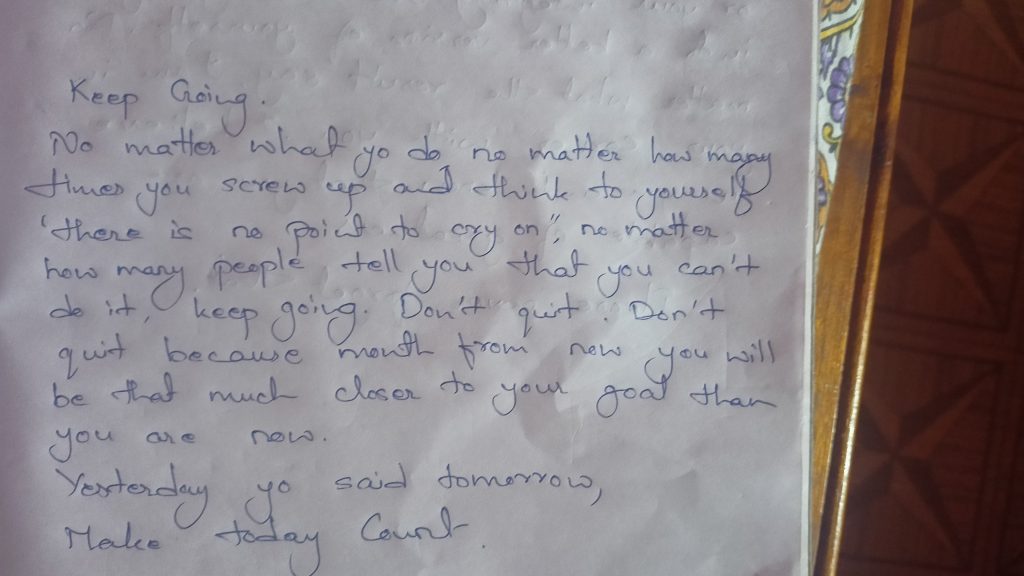 Keep Going.
No matter what yo do no matter how many
times you screw up and think to yourself
"there is no point to cry on", no matter
how many people tell you that you can't
do it, keep going. Don't quit. Don't
quit because month from now you will
be that much closer to your goal than
you are now.
Yesterday yo said tomorrow,
Make today Count.